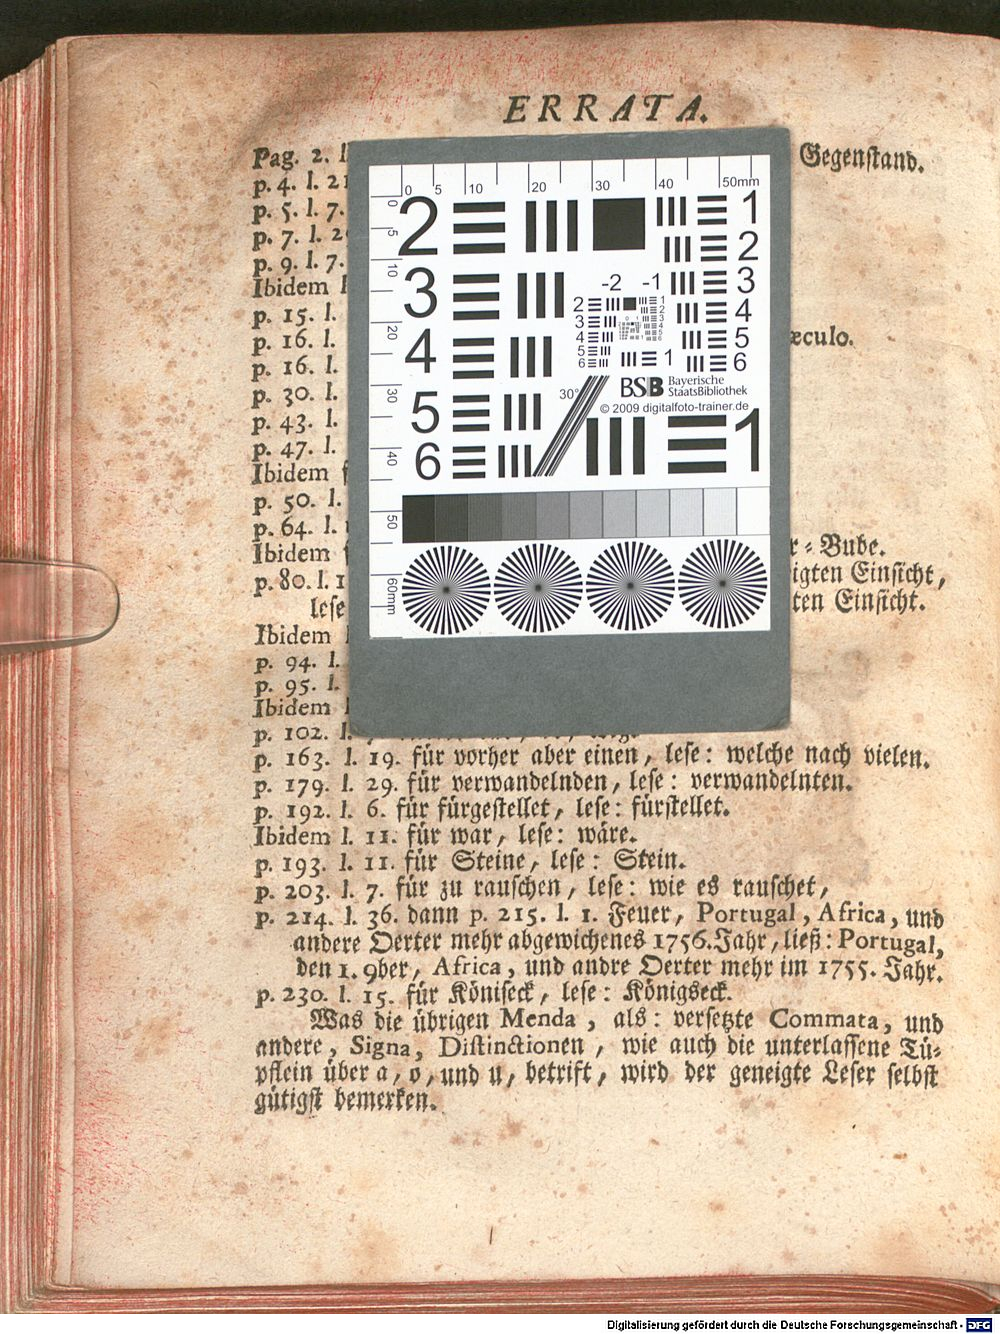 ERRATA.
Pag. 2. l Gegenstand.
p. 4. l. 21
p. 5. l. 7.
p. 7. l. 20
p. 9. l. 7.
Ibidem
p. 15. l.
p. 16. l. æculo.
p. 16. l.
p. 30. l.
p. 43. l.
p. 47. l.
Ibidem
p. 50. l.
p. 64. l.
Ibidem r-Bube.
p. 80. l. 1 igten Einsicht,
lese ten Einsicht.
Ibidem
p. 94. l.
p. 95. l.
Ibidem
p. 102. l.
p. 163. l. 19. für vorher aber einen, lese: welche nach vielen.
p. 179. l. 29. für verwandelnden, lese: verwandelnten.
p. 192. l. 6. für fürgestellet, lese: fürstellet.
Ibidem l. 11. für war, lese: wäre.
p. 193. l. 11. für Steine, lese: Stein.
p. 203. l. 7. für zu rauschen, lese: wie es rauschet,
p. 214. l. 36. dann p. 215. l. 1. Feuer, Portugal, Africa, und
andere Oerter mehr abgewichenes 1756. Jahr, ließ: Portugal,
den 1. 9ber, Africa, und andre Oerter mehr im 1755. Jahr.
p. 230. l. 15. für Köniseck, lese: Königseck.
Was die übrigen Menda, als: versetzte Commata, und
andere, Signa, Distinctionen, wie auch die unterlassene Tü-
pflein über a, o, und u, betrift, wird der geneigte Leser selbst
gütigst bemerken.
0 5 10 20 30 40 50mm
0 5 10 20 30 40 50 60mm
2 1
2
3 -2 -1 3
4 4
5
6
5
6
2 3 4 5 6 1
30°
BSB Bayerische
StaatsBibliothek
© 2009 digitalfoto-trainer.de
1
Digitalisierung gefördert durch die Deutsche Forschungsgemeinschaft - DFG